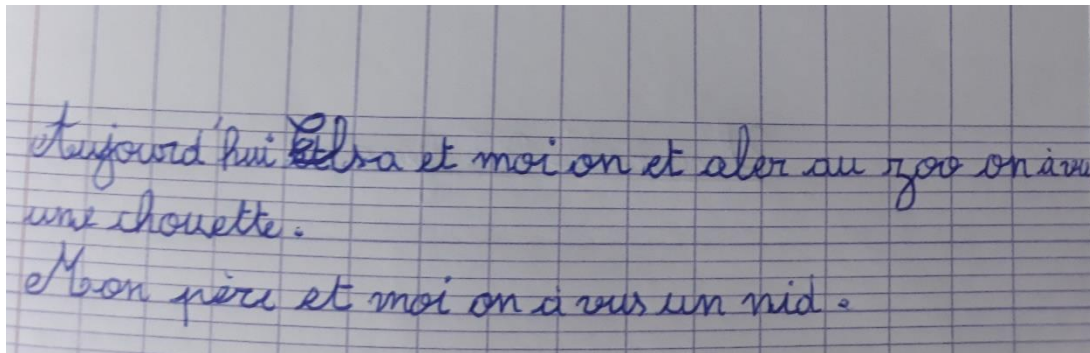 Aujourd'hui Elsa et moi on et aler au zoo on à vu
une chouette.
Mon père et moi on à vus un nid.